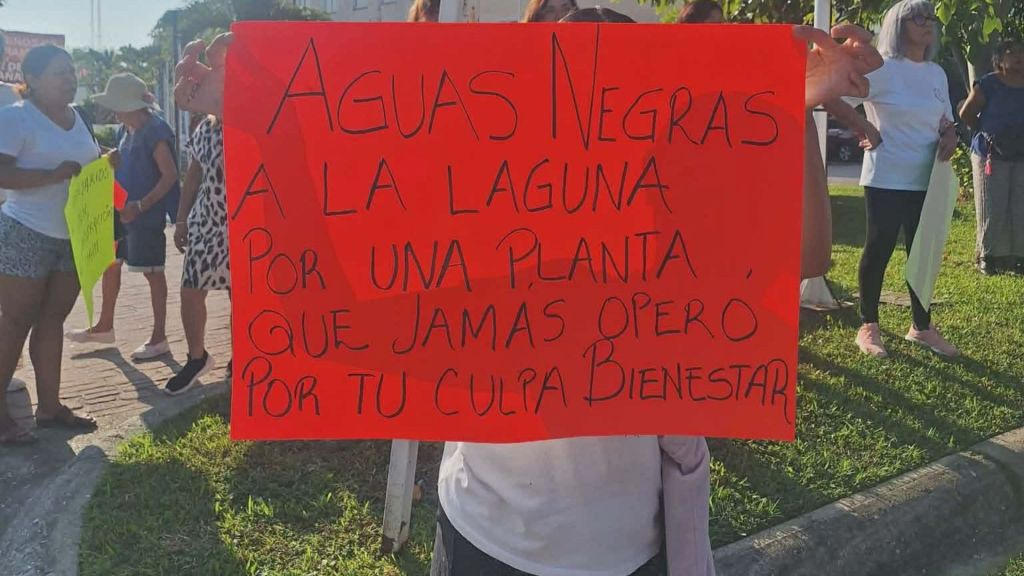 AGUAS NEGRAS
A LA LAGUNA
POR UNA PLANTA,
QUE JAMAS OPERO
POR TU CULPA BIENESTAR